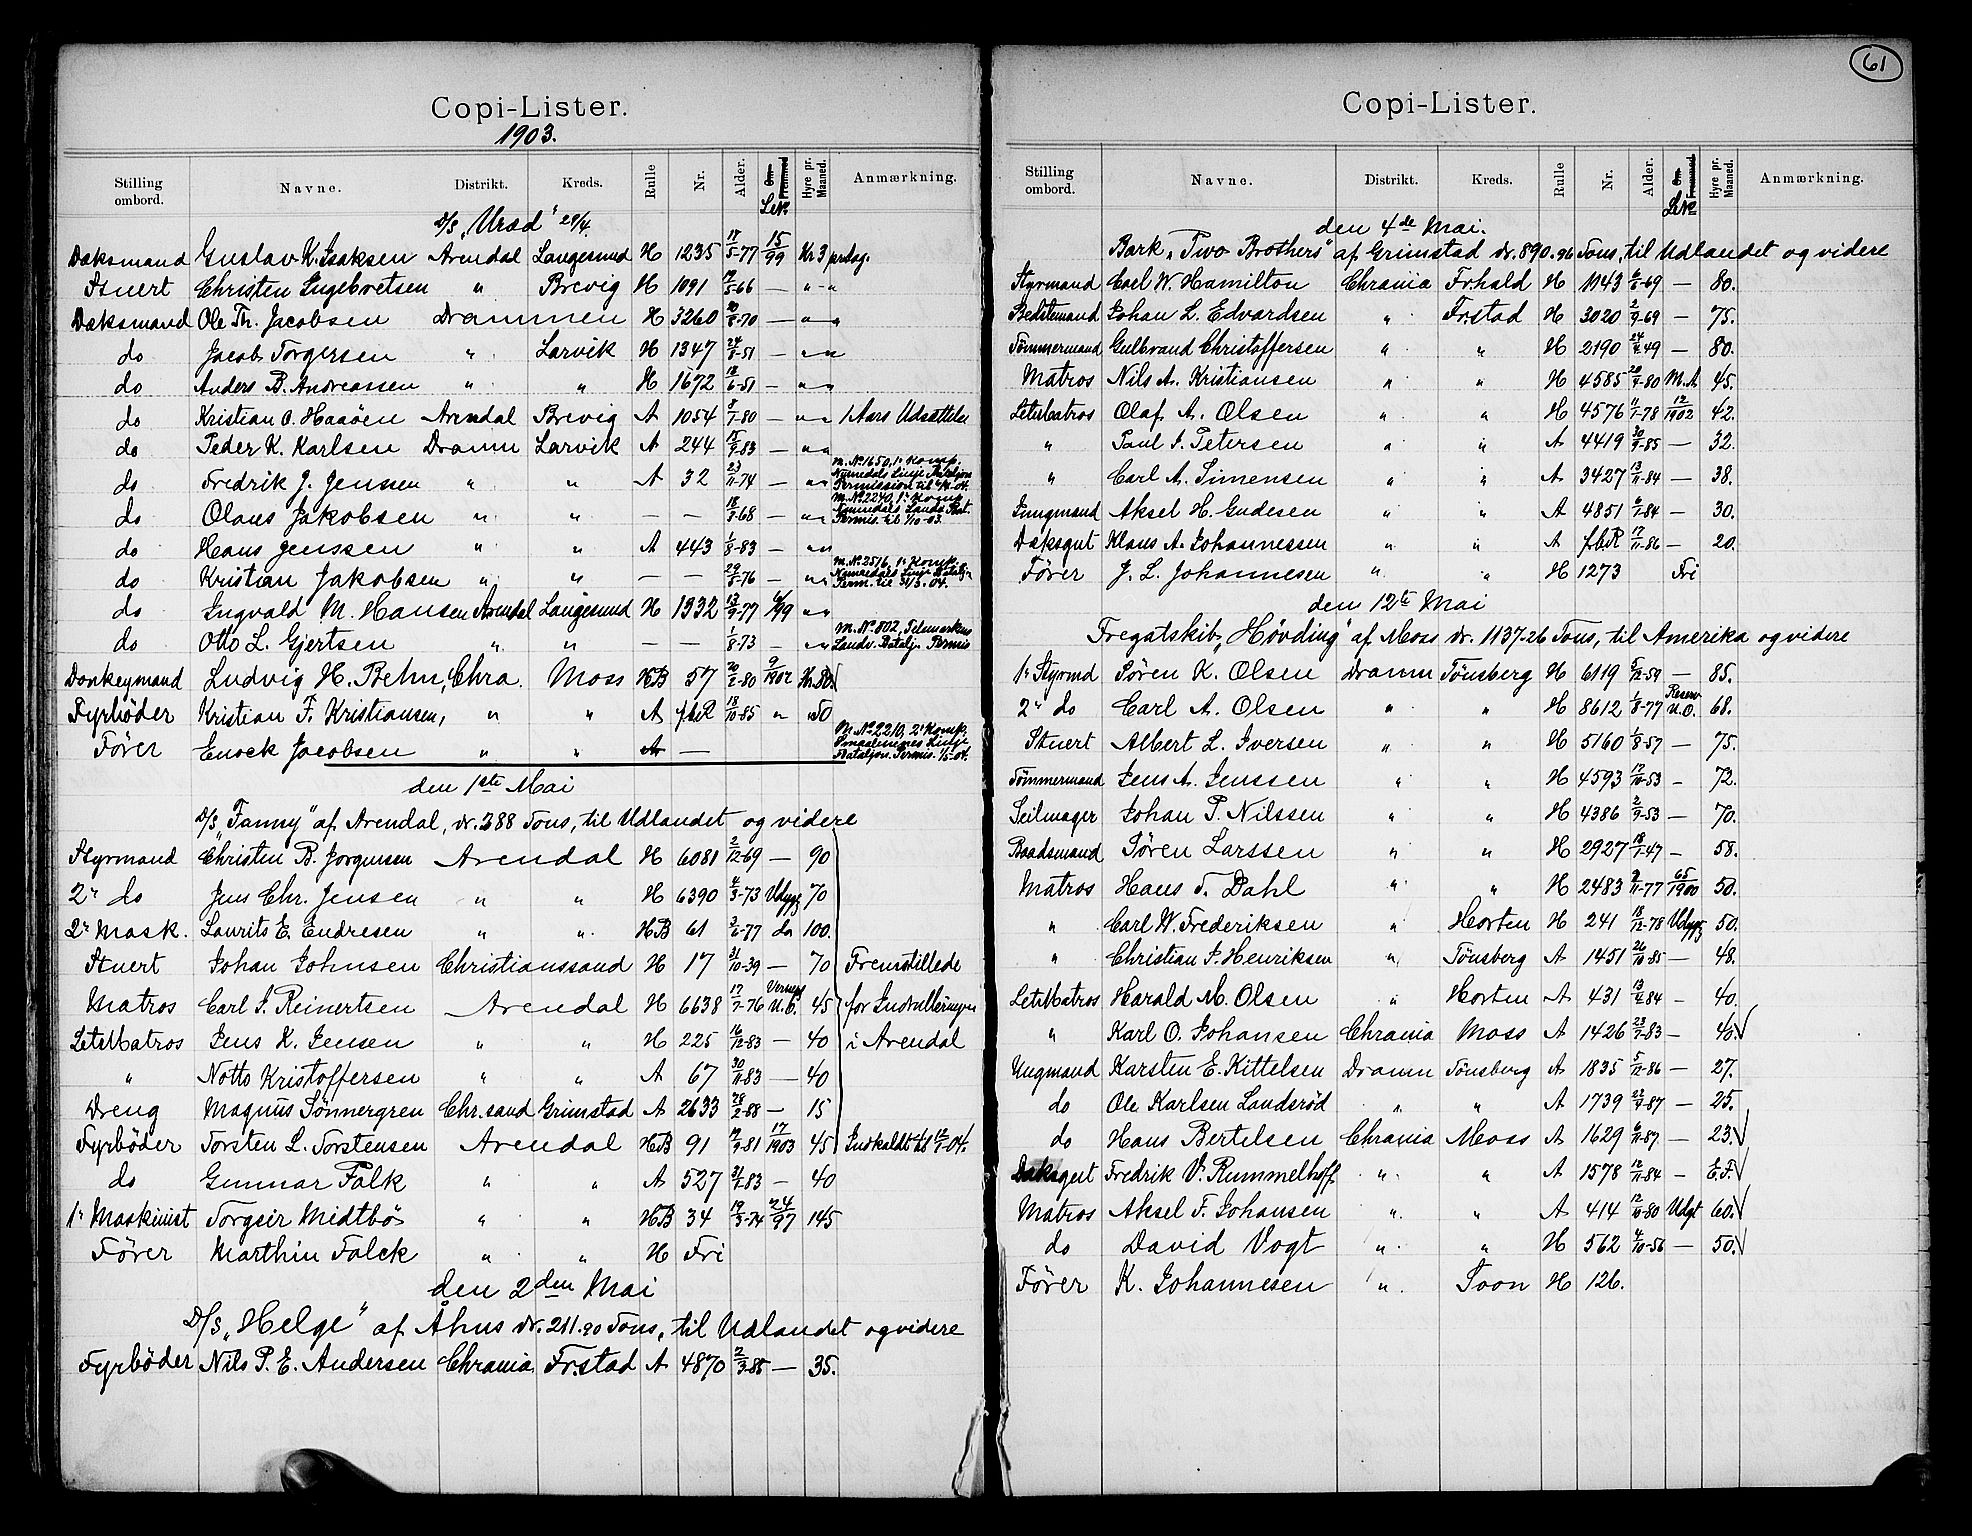 Copi-Lister.
1903.
Stilling ombord. Navne. Distrikt. Kreds. Rulle Nr. Alder. Hyre pr. Maaned. Anmærkning.
D/S „Uræd" 29/4.
Dæksmand Gustav K. Isaksen Arendal Langesund H 1235 17/5-77 15/99 Kr 3 pr dag.
Stuert Christen Ingebretsen " Brevig H 1091 -66 — " - "
Dæksmand Ole Th. Jacobsen Drammen H 3260 -70 — " "
do Jacob Torgersen " Larvik H 1347 24/8-51 — " "
do Anders B. Andreassen " " H 1672 18/6-51 — " "
do Kristian O. Haaöen Arendal Brevig A 1054 8/1-80 — " " 1 Aars Udsættelse
do Peder K. Karlsen Dramm Larvik A 244 15/9-83 — " "
do Fredrik J. Jenssen " " A 32 23/11-74 — " " M. No 1650, 1ste Komp. Numedals Linje Bataljon Permission til
do Olaus Jakobsen " " — — 18/8-68 — " " M. No 2240, 1ste Komp. Numedals Landv. Bat. Permis. til 1/10-03.
do Hans Jenssen " " A 443 1/8-83 — " "
do Kristian Jakobsen " " — — 29/5-76 — " " M. No 2576, 1ste Komp. Numedals Linje Batalj. Perm. til
do Ingvald M. Hansen Arendal Langesund H 1332 13/9-77 " "
do Otto L. Gjertsen " " — — 1/8-73 — " " M. No 802, Telemarkens Landv. Batalj. Permis
Donkeymand Ludvig H. Behn, Chra. Moss HB 57 20/2-80 9/1902 Kr. 80.
Fyrböder Kristian F. Kristiansen, " " A fbR 18/10-85 " " 50
Förer Enock Jacobsen " " A — M. No 2210, 2 Komp. Smaalenenes Linje Bataljon. Permis.
den 1ste Mai
D/S „Fanny" af Arendal, dr. 388 Tons, til Udlandet og videre
Styrmand Christen B. Jorgensen Arendal H 6081 2/12-69 — 90
2 do Jens Chr. Jensen " " H 6390 4/3-73 Udygg 70
2 Mask. Laurits E. Endresen " " HB 61 3/6-77 do 100.
Stuert Johan Johnsen Christianssand H 17 31/10-39 — 70 Fremstillede
Matros Carl J. Reinertsen Arendal H 6638 17/7-76 U.O. 45 for Indrulleringen
LetMatros Jens K. Jensen " " H 225 16/12-83 — 40 i Arendal
" Notto Kristoffersen " " A 67 30/11-83 — 40
Dreng Magnus Sönnergren Chr.sand Grimstad A 2633 28/2-88 — 15
Fyrböder Torsten L. Torstensen Arendal HB 91 -81 17/1903 45 Indkaldt til
do Gunnar Falk " " A 527 -83 — 40
1ste Maskinist Torgeir Midtbö " " HB 34 19/3-74 24/97 145
Förer Marthin Falck " " H Fri
den 2den Mai
D/S „Helge" af Åhus dr. 211.90 Tons, til Udlandet og videre
Fyrböder Nils P. E. Andersen Chrania Fr.stad A 4870 2/3-85 — 35.
61
Copi-Lister.
Stilling ombord. Navne. Distrikt. Kreds. Rulle Nr. Alder. Hyre pr. Maaned. Anmærkning.
den 4de Mai.
Bark „Two Brothers" af Grimstad dr. 890.96 Tons, til Udlandet og videre
Styrmand Carl W. Hamilton Chrania Fr.hald H 1143 6/6-69 — 80.
Bedstemand Johan L. Edvardsen " Fr.stad H 3020 2/9-69 — 75.
Tömmermand Gulbrand Christoffersen " " H 2190 -49 — 80.
Matros Nils A. Kristiansen " " H 4585 20/9-80 M.A 45.
LetMatros Olaf A. Olsen " " H 4576 11/1-78 12/1902 42.
" Paul J. Petersen " " A 4419 30/9-85 — 32.
" Carl A. Simensen " " A 3427 13/11-84 — 38.
Jungmand Aksel H. Gudesen " " A 4851 6/1-84 — 30.
Dæksgut Klaus A. Johannessen " " A fbR 17/11-86 — 20.
Förer J. L. Johannesen " " H 1273 Fri
den 12te Mai
Fregatskib „Hövding" af Moss dr. 1137-26 Tons, til Amerika og videre
1ste Styrmd Sören K. Olsen Dramm Tönsberg H 6119 5/12-59 — 85.
2 do Carl A. Olsen " " H 8612 1/8-77 Reserv U.O. 68.
Stuert Albert L. Iversen " " H 5160 1/8-57 — 75.
Tömmermand Jens A. Jenssen " " H 4593 17/10-53 — 72.
Seilmager Johan P. Nilssen " " H 4386 2/9-53 — 70.
Baadsmand Sören Larssen " " H 2927 18/1-47 — 58.
Matros Hans T. Dahl " " H 2483 8/11-77 65/1900 50.
" Carl W. Frederiksen " Horten H 241 18/12-78 Udygg 50.
" Christian J. Henriksen " Tönsberg A 1451 26/10-85 — 48.
LetMatros Harald M. Olsen " Horten A 431 -84 — 40.
" Karl O. Johansen Chrania Moss A 1426 23/7-83 — 40.
Ungmand Karsten E. Kittelsen Dramm Tönsberg A 1835 5/11-86 — 27.
do Ole Karlsen Landsröd " " A 1739 -87 — 25.
do Hans Bertelsen Chrania Moss A 1629 6/11-87 — 23.
Dæksgut Fredrik V. Rummelhoff " " A 1578 12/11-84 — E.F.
Matros Aksel F. Johansen " " A 414 12/10-80 Udgt 60.
do David Vogt " " H 562 4/10-56 — 50.
Förer K. Johannesen " Soon H 126.